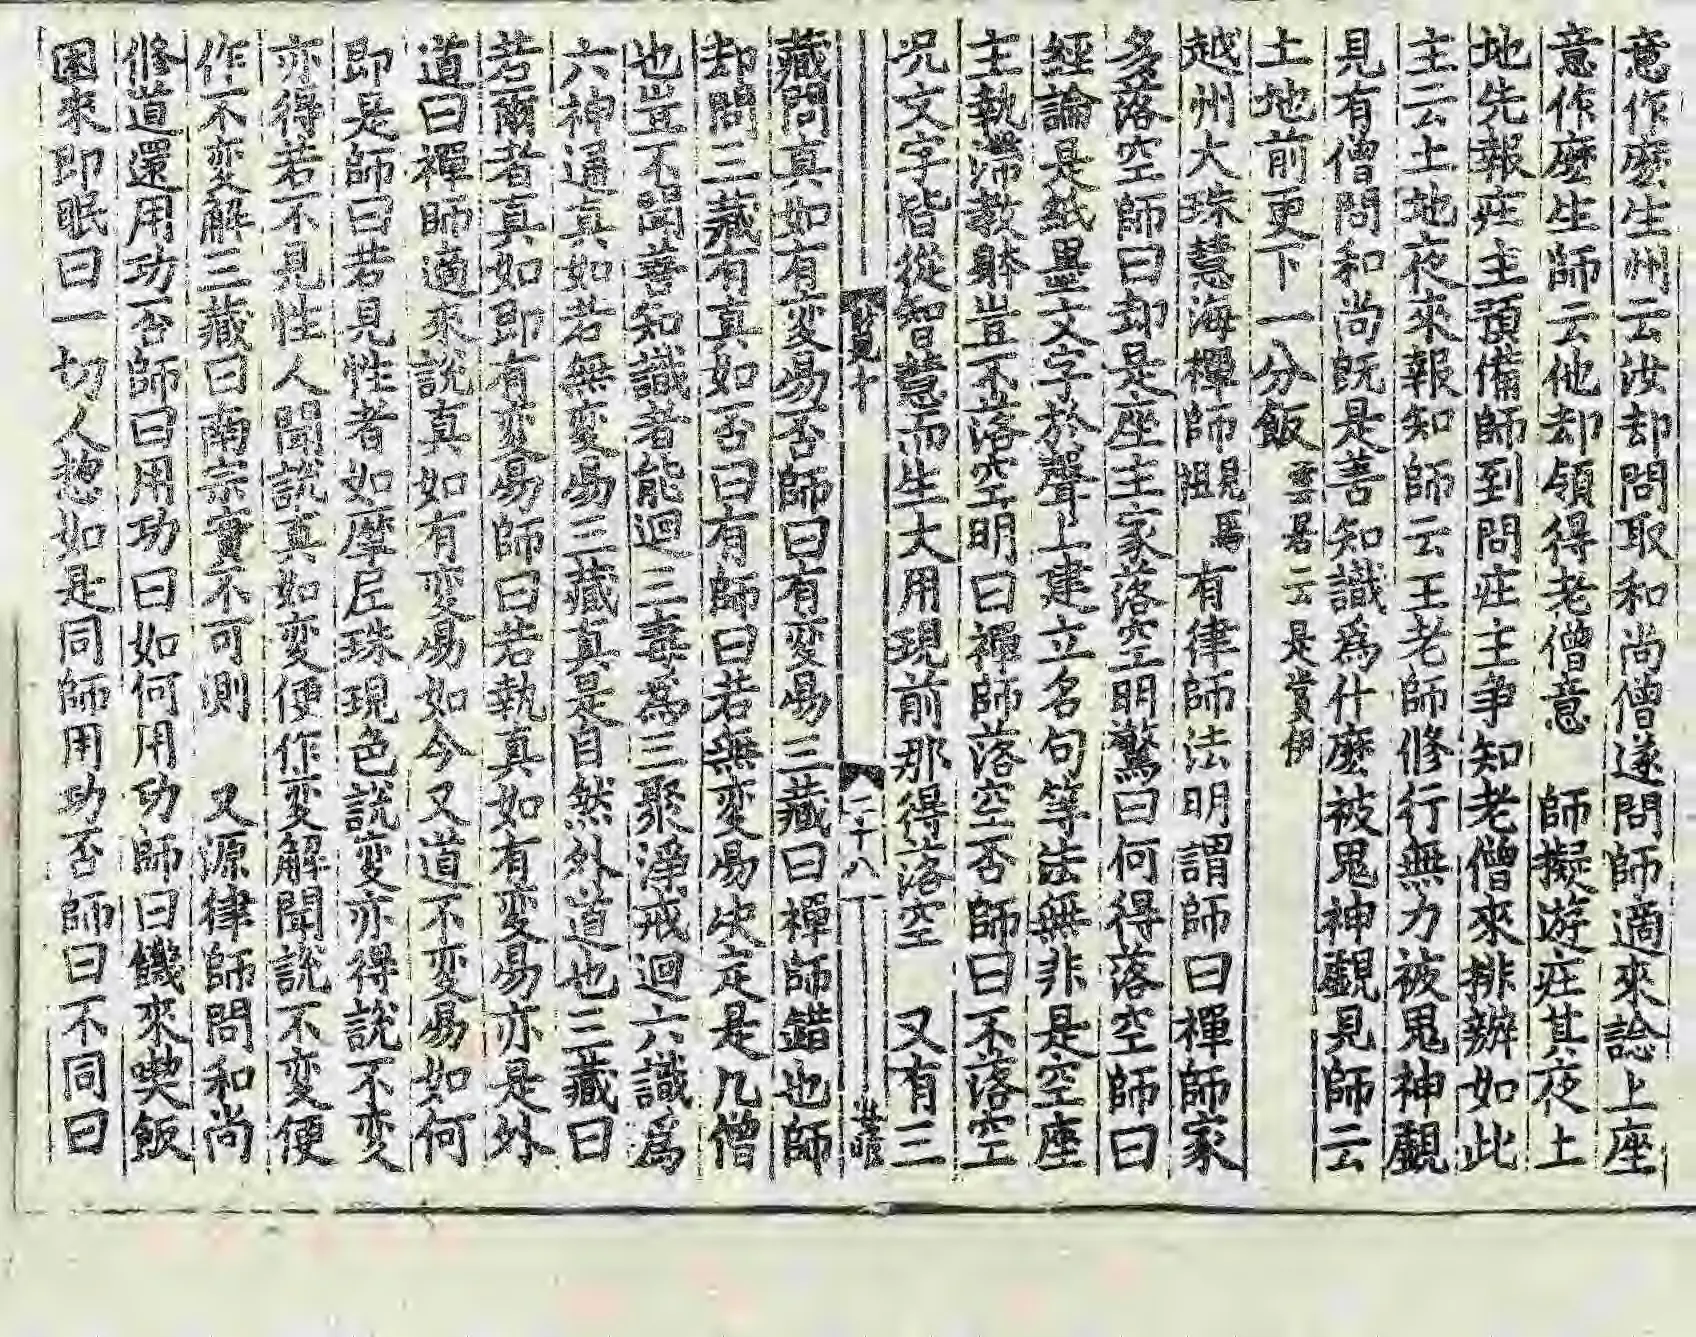 意作麽生州云汝却問取和尚僧遂問師適來諗上座
意作麽生師云他却領得老僧意　師擬遊庄其夜土
地先報庄主預備師到問庄主爭知老僧來排辦如此
主云土地夜來報知師云王老師修行無力被鬼神覷
見有僧問和尚既是善知識爲什麽被鬼神覷見師云
土地前更下一分飯雲居云是賞伊
越州大珠慧海禪師　有律師法明謂師曰禪師家
多落空師曰却是座主家落空明驚曰何得落空師曰
經論是紙墨文字於聲上建立名句等法無非是空座
主執滯教躰豈不落空明曰禪師落空否師曰不落空
況文字皆從智慧而生大用現前那得落空　又有三
二十八
藏問真如有変易否師曰有変易三藏曰禪師錯也師
却問三藏有真如否曰有師曰若無変易决定是凡僧
也豈不聞善知識者能迴三毒爲三聚淨戒迴六識爲
六神通真如若無変易三藏真是自然外道也三藏曰
若爾者真如即有変易師曰若執真如有変易亦是外
道曰禪師適來說真如有変易如今又道不変易如何
即是師曰若見性者如摩尼珠現色說変亦得說不変
亦得若不見性人聞說真如変便作変解聞說不変便
作不変解三藏曰南宗實不可測　又源律師問和尚
修道還用功否師曰用功曰如何用功師曰饑來喫飯
困來即眠曰一切人緫如是同師用功否師曰不同曰